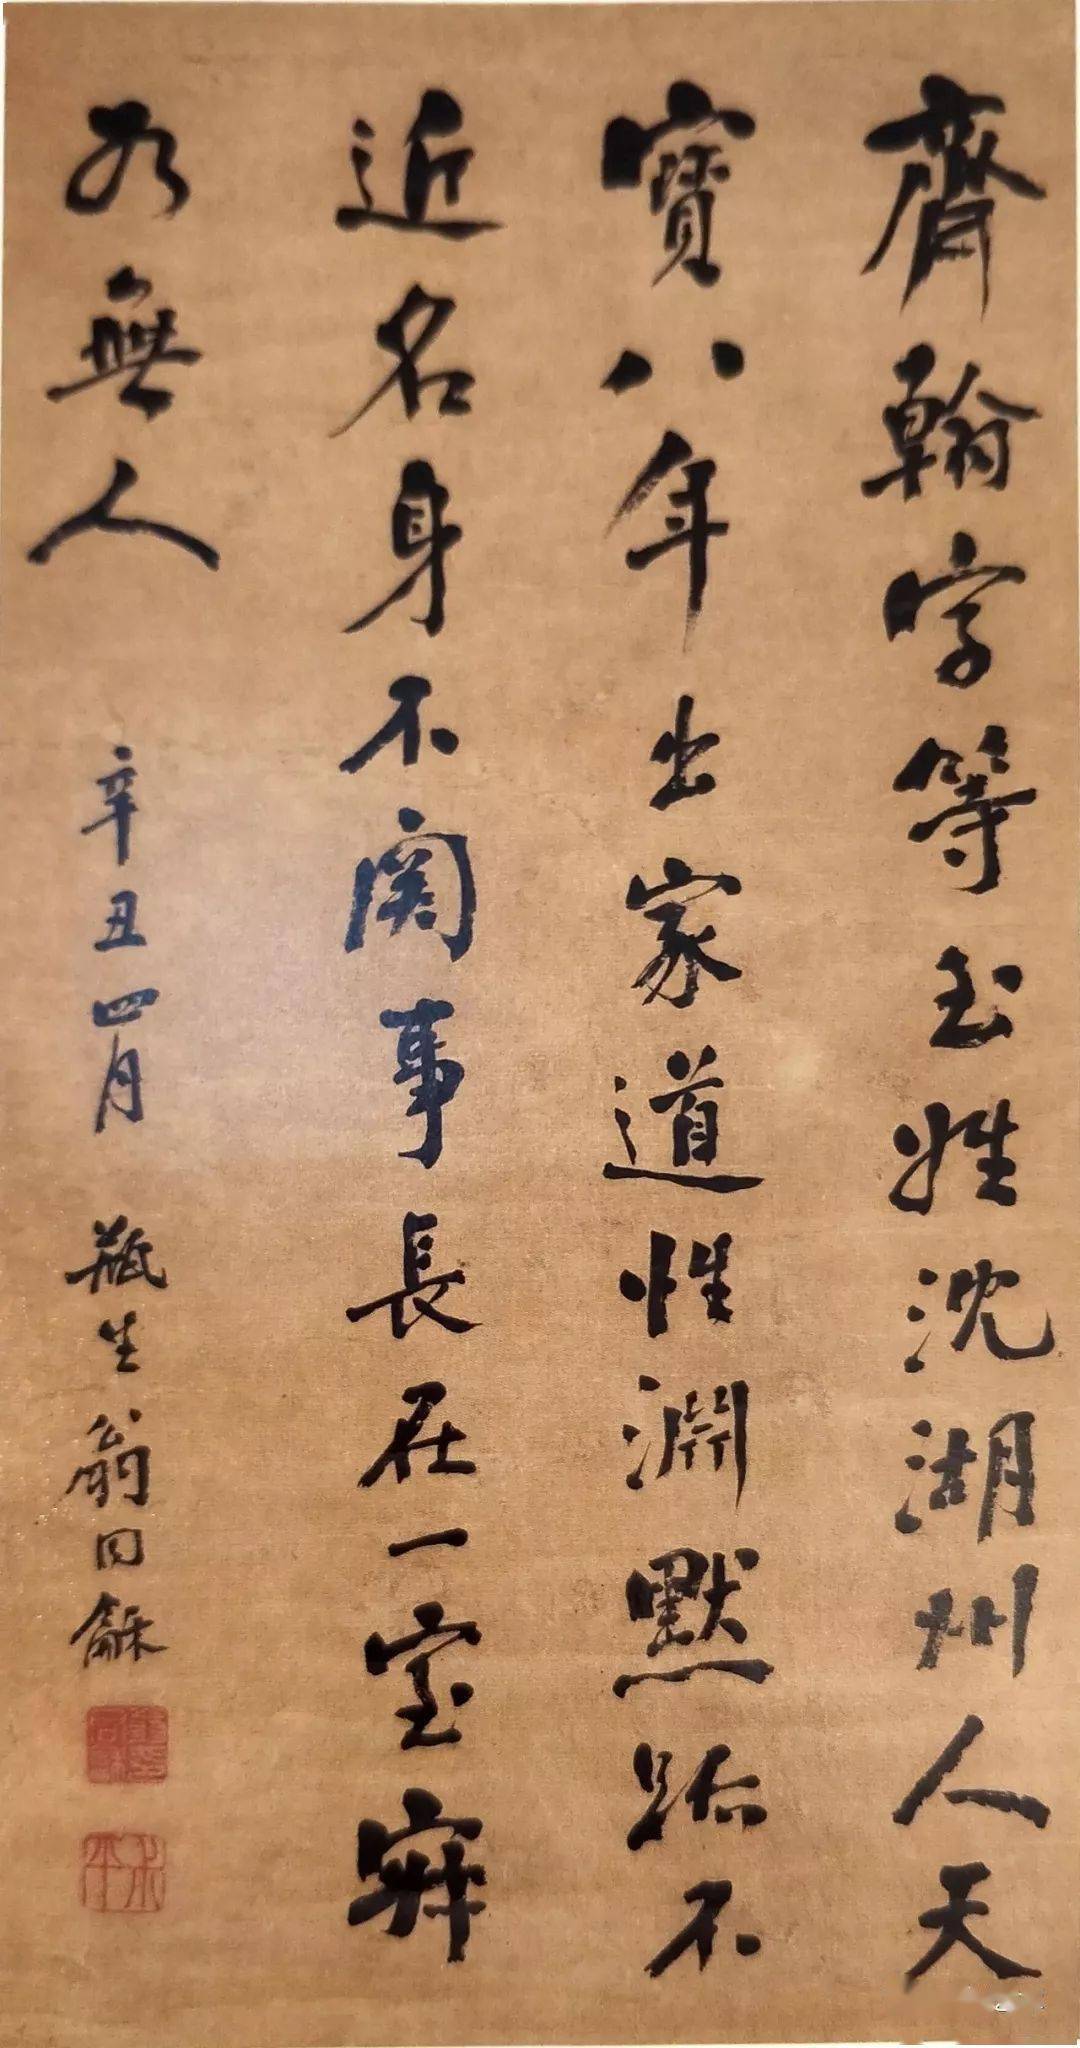 齊翰字等至姓沈湖州人天
寶八年出家道性淵默跡不
近名身不関事長在一室寂
若無人
辛丑四月 瓶生翁同龢
翁同龢印
叔平